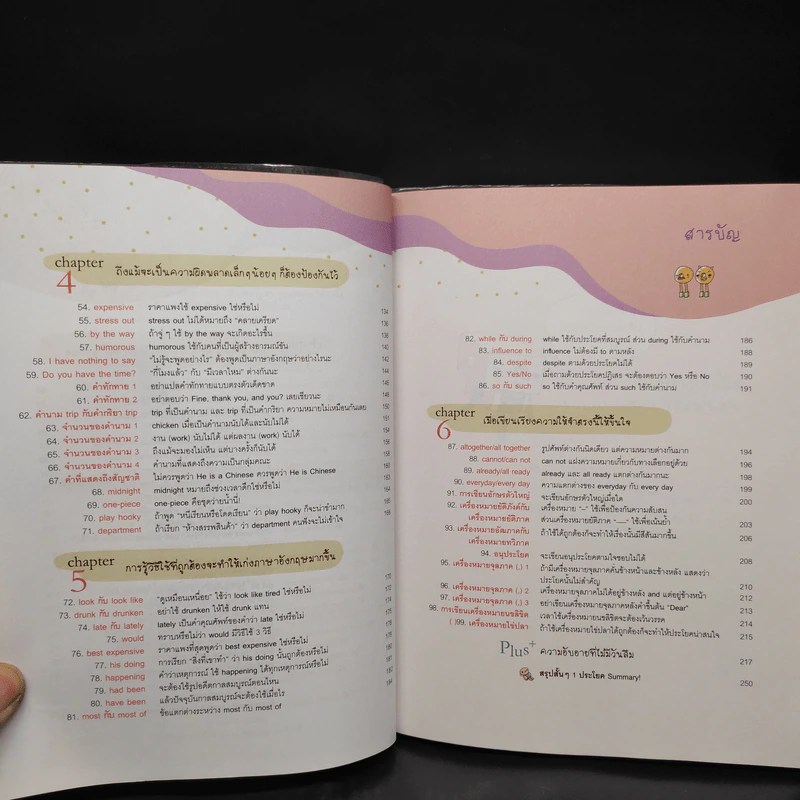 chapter
4 ถึงแม้จะเป็นความผิดพลาดเล็กๆน้อยๆ ก็ต้องป้องกันไว้
54. expensive ราคาแพงใช้ expensive ใช่หรือไม่ 134
55. stress out stress out ไม่ได้หมายถึง "คลายเครียด"
56. by the way ถ้าจู่ ๆ ใช้ by the way จะเกิดอะไรขึ้น
57. humorous humorous ใช้กับคนที่เป็นผู้สร้างอารมณ์ขัน
58. I have nothing to say "ไม่รู้จะพูดอย่างไร" ต้องพูดเป็นภาษาอังกฤษว่าอย่างไรนะ
59. Do you have the time? "กี่โมงแล้ว" กับ "มีเวลาไหม" ต่างกันนะ
60. คำทักทาย 1 อย่าแปลคำทักทายแบบตรงตัวเด็ดขาด
61. คำทักทาย 2 อย่าตอบว่า Fine, thank you, and you? เลยเชียวนะ
62. คำนาม trip กับคำกริยา trip trip ที่เป็นคำนาม และ trip ที่เป็นคำกริยา ความหมายไม่เหมือนกันเลย
63. จำนวนของคำนาม 1 chicken เมื่อเป็นคำนามนับได้และนับไม่ได้
64. จำนวนของคำนาม 2 งาน (work) นับไม่ได้ แต่ผลงาน (work) นับได้
65. จำนวนของคำนาม 3 ถึงแม้จะมองไม่เห็น แต่บางครั้งก็นับได้
66. จำนวนของคำนาม 4 คำนามที่แสดงถึงความเป็นกลุ่มคณะ
67. คำที่แสดงถึงสัญชาติ ไม่ควรพูดว่า He is a Chinese ควรพูดว่า He is Chinese
68. midnight midnight หมายถึงช่วงเวลาดึกใช่หรือไม่
69. one-piece one-piece คือชุดว่ายน้ำนี่!
70. play hooky ถ้าพูด "หนีเรียนหรือโดดเรียน" ว่า play hooky ก็จะน่าขำมาก
71. department ถ้าเรียก "ห้างสรรพสินค้า" ว่า department คนฟังจะไม่เข้าใจ
chapter
5 การรู้วิธีใช้ที่ถูกต้องจะทำให้เก่งภาษาอังกฤษมากขึ้น
72. look กับ look like "ดูเหมือนเหนื่อย" ใช้ว่า look like tired ใช่หรือไม่
73. drunk กับ drunken อย่าใช้ drunken ให้ใช้ drunk แทน
74. late กับ lately lately เป็นคำคุณศัพท์ของคำว่า late ใช่หรือไม่
75. would ทราบหรือไม่ว่า would มีวิธีใช้ 3 วิธี
76. best expensive ราคาแพงที่สุดพูดว่า best expensive ใช่หรือไม่
77. his doing การเรียก "สิ่งที่เขาทำ" ว่า his doing นั้นถูกต้องหรือไม่
78. happening คำว่าเหตุการณ์ ใช้ happening ได้ทุกเหตุการณ์หรือไม่
79. had been จะต้องใช้รูปอดีตกาลสมบูรณ์ตอนไหน
80. have been แล้วปัจจุบันกาลสมบูรณ์จะต้องใช้เมื่อไร
81. most กับ most of ข้อแตกต่างระหว่าง most กับ most of
สารบัญ
82. while กับ during while ใช้กับประโยคที่สมบูรณ์ ส่วน during ใช้กับคำนาม 186
83. influence to influence ไม่ต้องมี to ตามหลัง 188
84. despite despite ตามด้วยประโยคไม่ได้ 189
85. Yes/No เมื่อถามด้วยประโยคปฏิเสธ จะต้องตอบว่า Yes หรือ No 190
86. so กับ such so ใช้กับคำคุณศัพท์ ส่วน such ใช้กับคำนาม 191
chapter
6 เมื่อเขียนเรียงความให้จำตรงนี้ให้ขึ้นใจ
87. altogether/all together รูปศัพท์ต่างกันนิดเดียว แต่ความหมายต่างกันมาก 194
88. cannot/can not can not แฝงความหมายเกี่ยวกับทางเลือกอยู่ด้วย 196
89. already/all ready already และ all ready แตกต่างกันมากนะ 198
90. everyday/every day ความแตกต่างของ everyday กับ every day 199
91. การเขียนอักษรตัวใหญ่ จะเขียนอักษรตัวใหญ่เมื่อใด 200
92. เครื่องหมายยัติภังค์กับ เครื่องหมาย "-" ใช้เพื่อป้องกันความสับสน
เครื่องหมายยัติภาค ส่วนเครื่องหมายยัติภาค "—" ใช้เพื่อเน้นย้ำ 203
93. เครื่องหมายอัฒภาคกับ ถ้าใช้ได้ถูกต้องก็จะทำให้เรื่องนั้นมีสีสันมากขึ้น 206
เครื่องหมายทวิภาค
94. อนุประโยค จะเขียนอนุประโยคตามใจชอบไม่ได้ 208
95. เครื่องหมายจุลภาค (,) 1 ถ้ามีเครื่องหมายจุลภาคคั่นข้างหน้าและข้างหลัง แสดงว่า
ประโยคนั้นไม่สำคัญ 210
96. เครื่องหมายจุลภาค (,) 2 เครื่องหมายจุลภาคไม่ได้อยู่ข้างหลัง แต่อยู่ข้างหน้า 212
97. เครื่องหมายจุลภาค (,) 3 อย่าเขียนเครื่องหมายจุลภาคหลังคำขึ้นต้น "Dear" 213
98. การเขียนเครื่องหมายนขลิขิต เวลาใช้เครื่องหมายนขลิขิตจะต้องเว้นวรรค 214
( )99. เครื่องหมายไข่ปลา ถ้าใช้เครื่องหมายไข่ปลาได้ถูกต้องก็จะทำให้ประโยคน่าสนใจ 215
Plus+ ความอับอายที่ไม่มีวันลืม 217
สรุปสั้นๆ 1 ประโยค Summary! 250